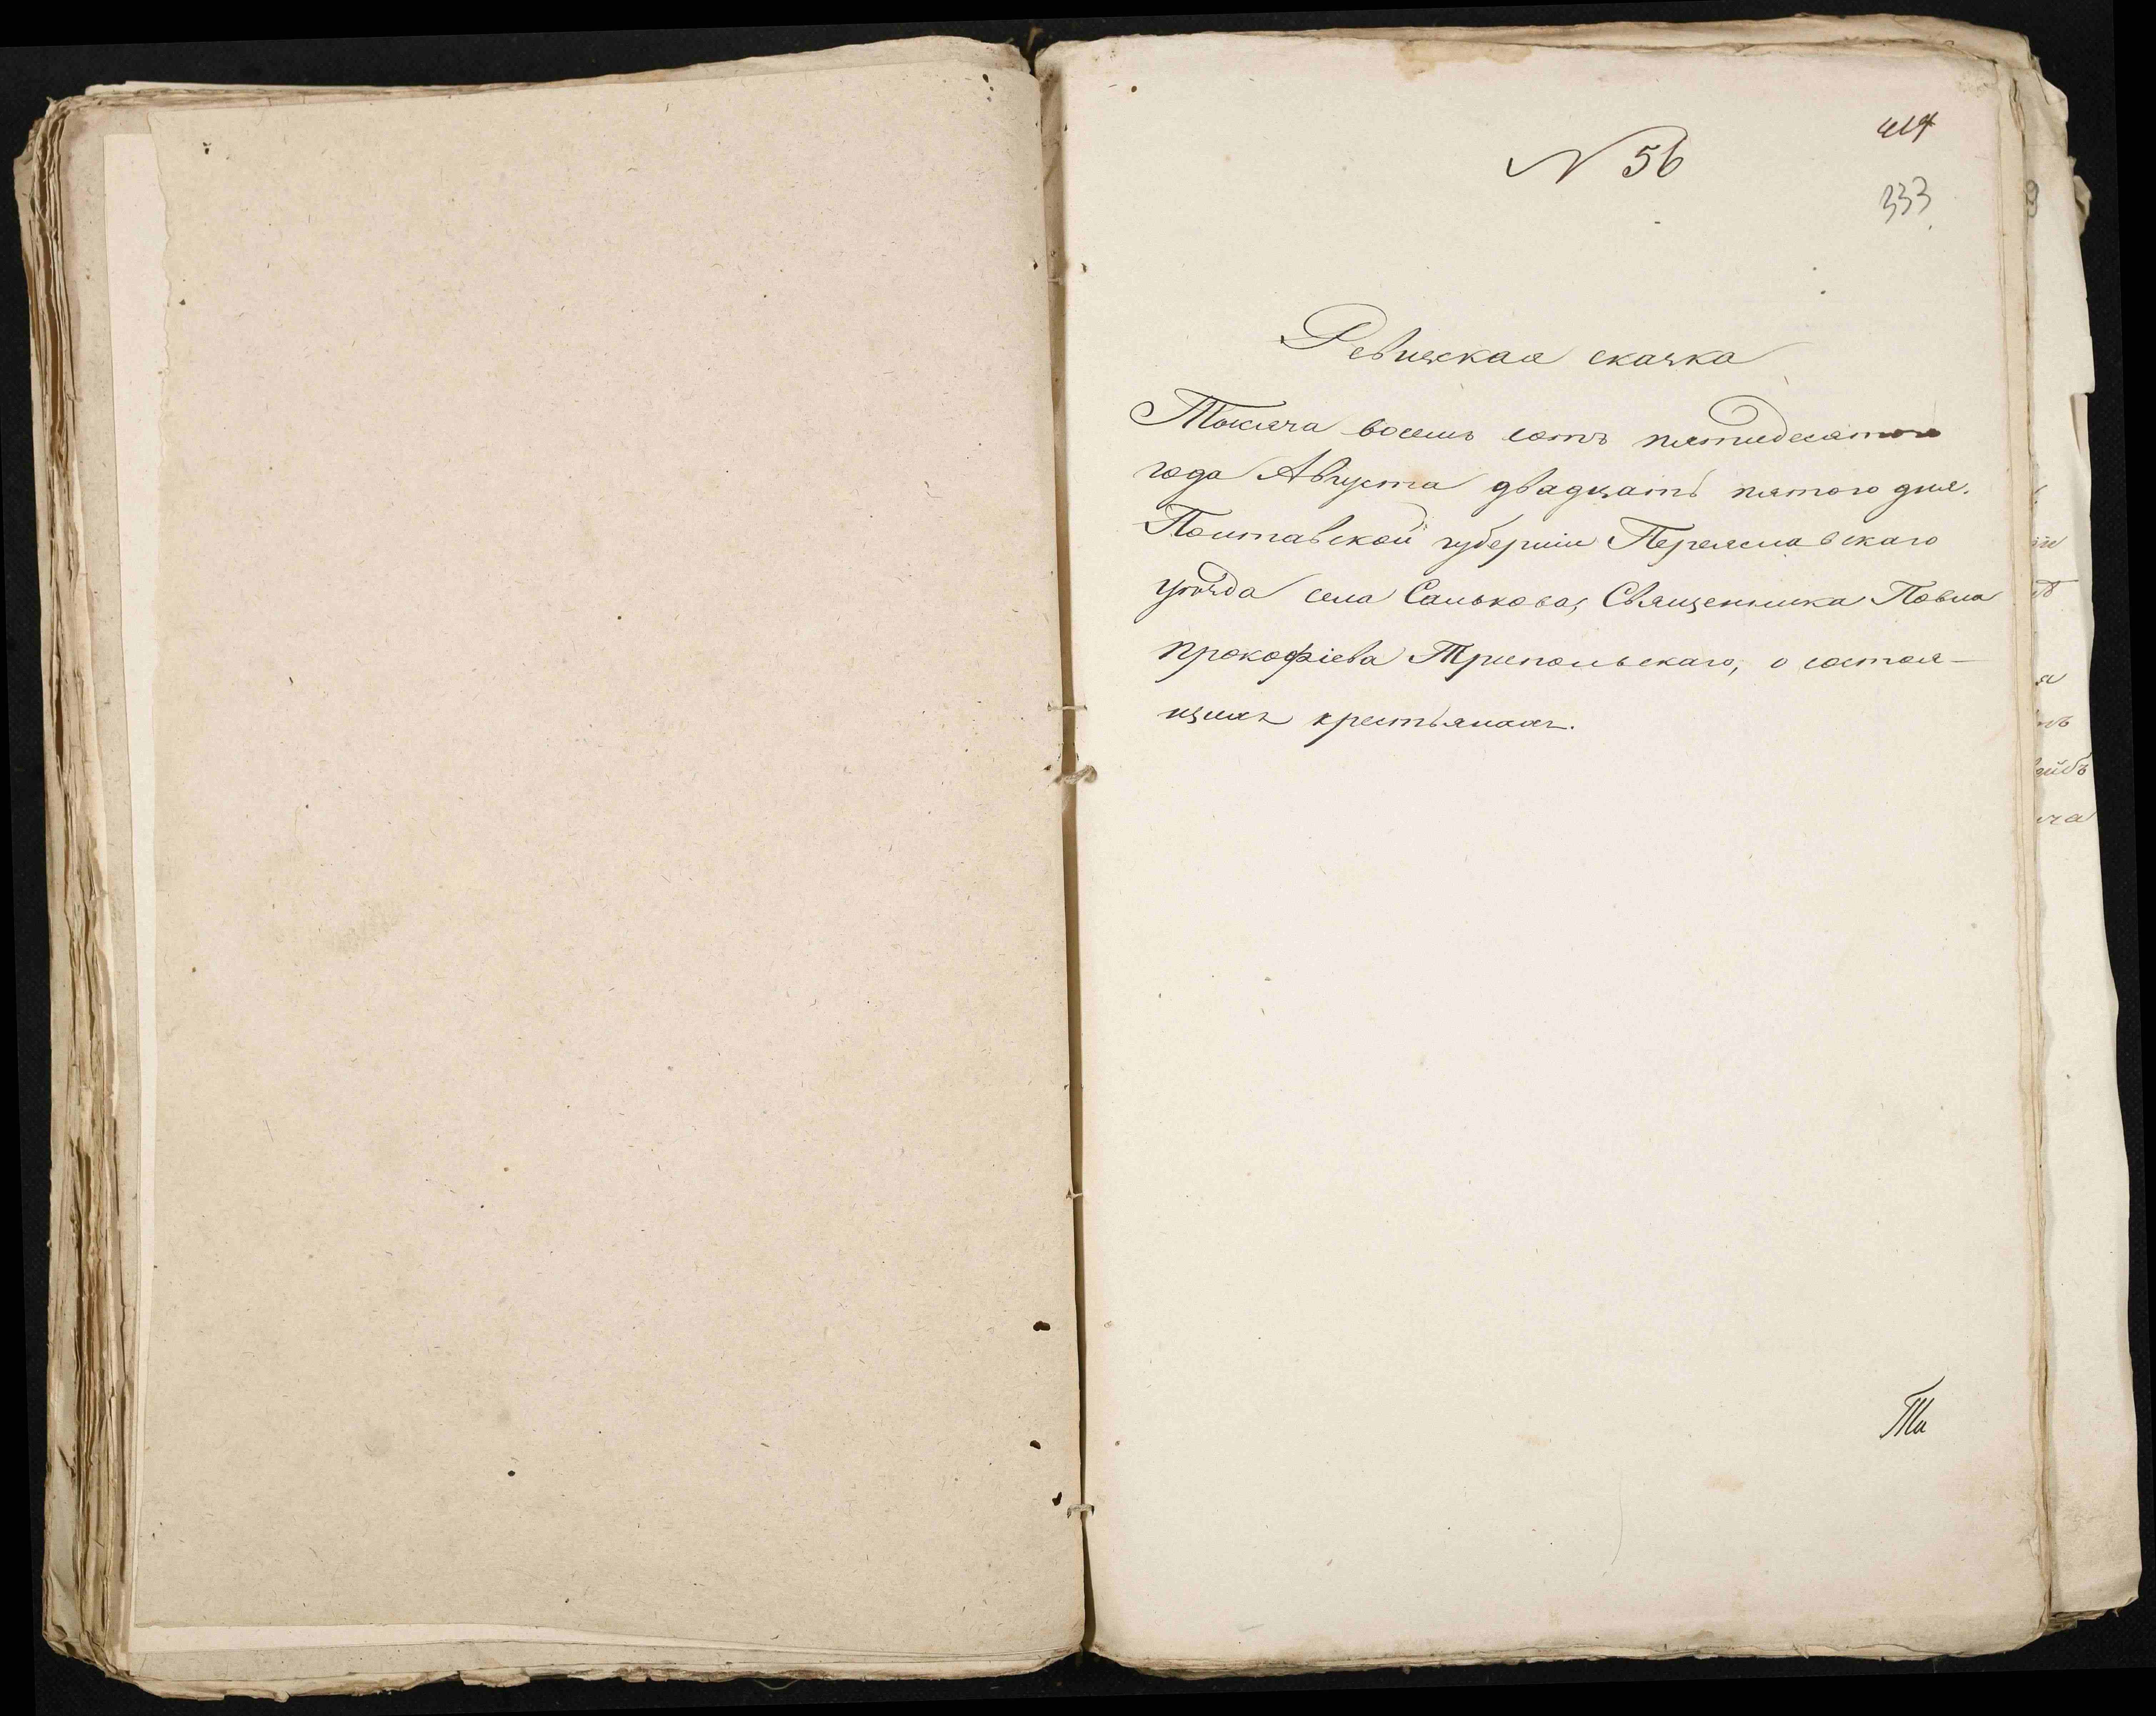 414
N 56
333
Ревизская сказка
Тысяча восемь сотъ пятидесятого
года Августа двадцать пятого дня.
Полтавской губерніи Переяславскаго
уѣзда села Санькова, Священника Павла
Прокофіева Трипольскаго, о состоя-
щихъ крестьянахъ.